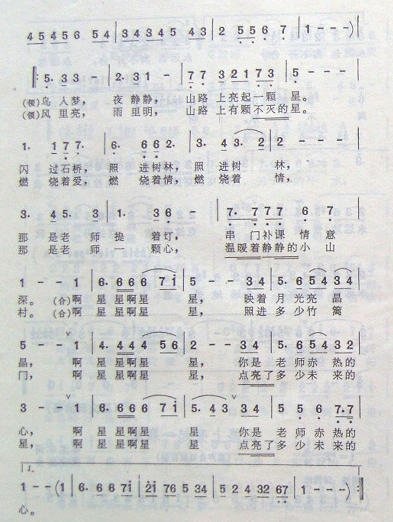 4 5 4 5 6 5 4 | 3 4 3 4 5 4 3 | 2 5 5 6 7 | 1 - - - )
5. 3 3 - | 2. 3 1 - | 7 7 3 2 1 7 3 | 5 - - - |
(领)鸟 入梦， 夜 静静， 山路 上亮起一颗 星。
(领)风 里亮， 雨 里明， 山路 上有颗不灭的星。
1. 1 7 7. | 6. 6 6 2. | 3. 4 3. 2 | 2 - - - |
闪 过石桥， 照 进树林， 照 进树 林，
燃 烧着爱， 燃 烧着情， 燃 烧着 情，
3. 4 5. 3 | 1. 3 6 - | 7. 7 7 7 6 7 |
那 是老 师 提 着灯， 串 门补课 情 意
那 是老 师 一 颗心， 温暖着静静的小 山
1 - - 1 | 6. 6 6 6 7 i | 5 - - 3 4 | 5 5 6 5 4 3 4 |
深。 (合)啊 星 星啊星 星， 映着 月 光亮 晶
村。 (合)啊 星 星啊星 星， 照进 多 少竹 篱
5 - - 1 | 4. 4 4 4 5 6 | 5 - - 3 4 | 5 5 6 5 4 3 2 |
晶， 啊 星 星啊星 星， 你是 老 师 赤 热的
门， 啊 星 星啊星 星， 点亮了多 少未 来的
3 - - 1 | 6. 6 6 6 7 i | 5. 4 3 3 4 | 5 5 6 7. 7 |
心， 啊 星 星啊星 星， 你是 老 师 赤 热的
星， 啊 星 星啊星 星， 点亮了多 少未 来的
1.
1 - - (1 | 6. 6 6 7 i | 2 i 7 6 5 3 4 | 5 2 4 3 2 6 7 | 1 - - )
心。